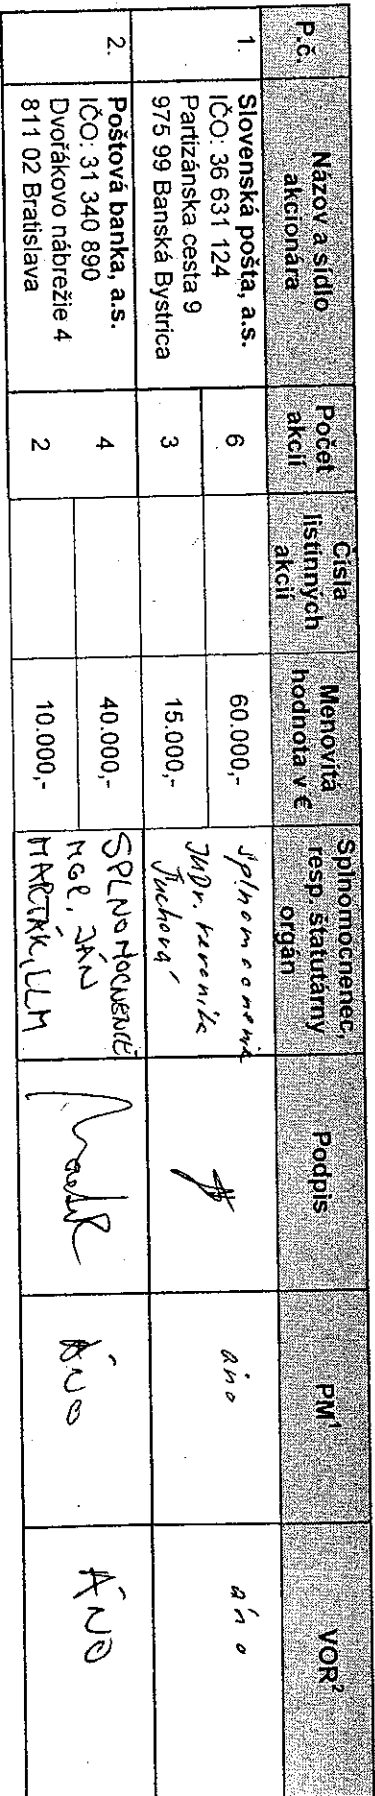 P.č.
Názov a sídlo
akcionára
Počet
akcií
Čísla
listinných
akcií
Menovitá
hodnota v €
Splnomocnenec,
resp. štatutárny
orgán
Podpis
PM¹
VOR²
1.
Slovenská pošta, a.s.
IČO: 36 631 124
Partizánska cesta 9
975 99 Banská Bystrica
6
60.000,-
3
15.000,-
JUDr. Veronika
áno
áno
2.
Poštová banka, a.s.
IČO: 31 340 890
Dvořákovo nábrežie 4
811 02 Bratislava
4
40.000,-
2
10.000,-
SPLNOMOCNENIE
MGR. JÁN
MARTÁK, LLM
ÁNO
ÁNO